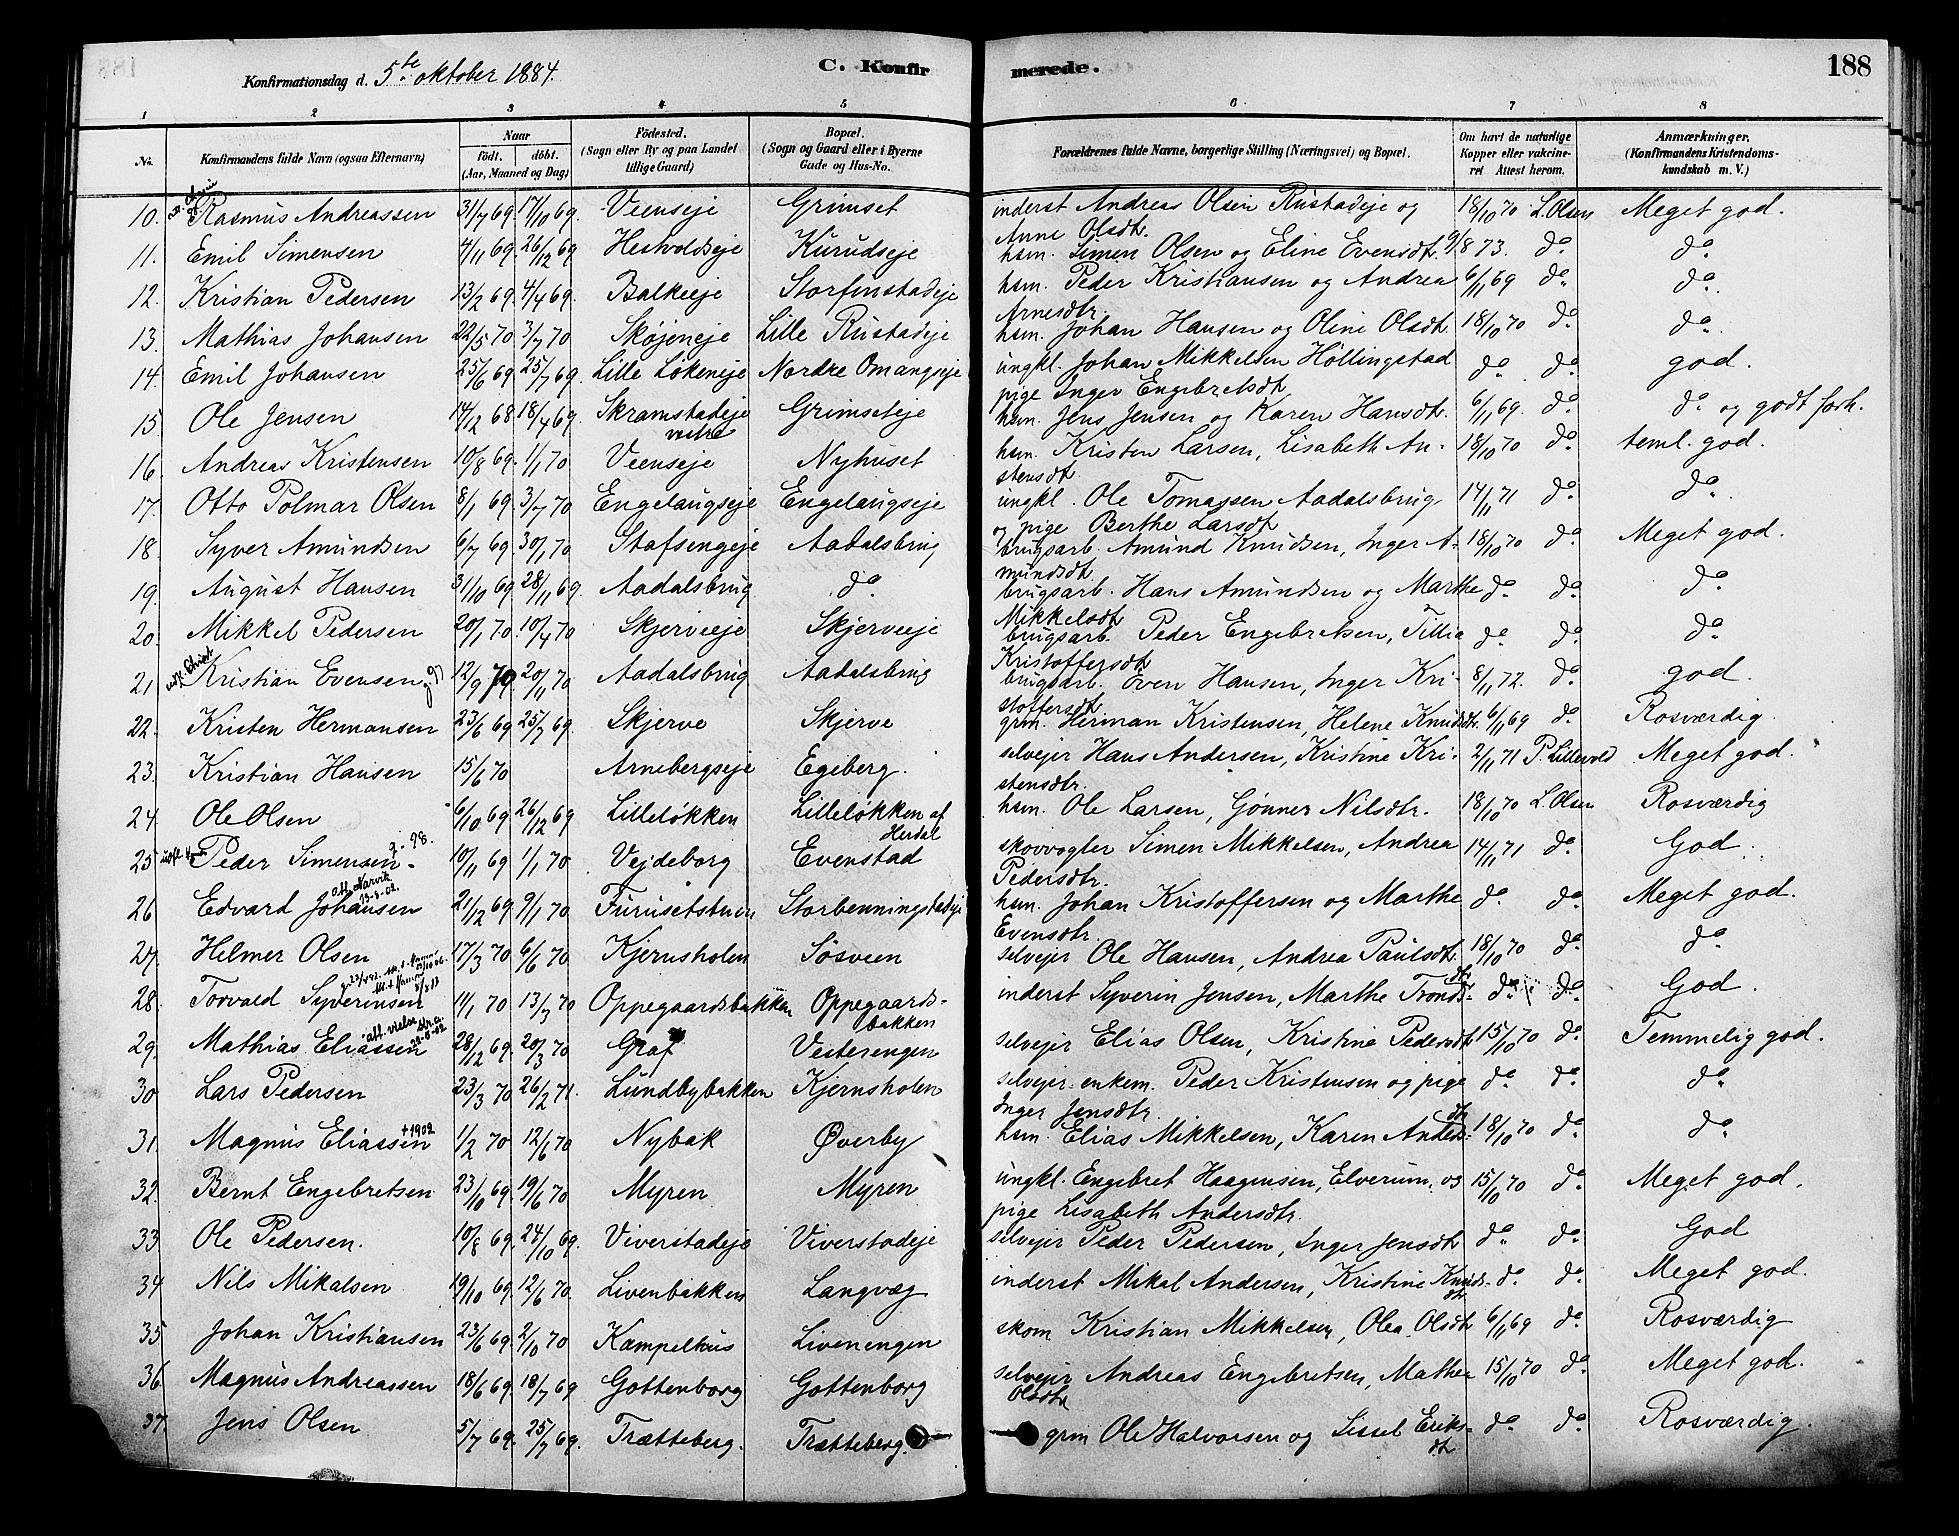 188
Konfirmationsdag d. 5te oktober 1884.
C. Konfirmerede.
1 2 3 4 5 6 7 8
No. Konfirmandens fulde Navn (ogsaa Efternavn) Naar født. døbt. (Aar, Maaned og Dag) Fødested. (Sogn eller By og paa Landet tillige Gaard) Bopæl. (Sogn og Gaard eller i Byerne Gade og Hus-No. Forældrenes fulde Navne, borgerlige Stilling (Næringsvei) og Bopæl. Om havt de naturlige Kopper eller vakcineret Attest herom. Anmærkninger, (Konfirmandens Kristendomskundskab m. V.)
10. Rasmus Andreassen 31/7 69. 17/10 69. Veenseje Grimset inderst Andreas Olsen Rustadeje og Anne Olsdtr. 18/10 70 L. Olsen Meget god.
11. Emil Simensen 4/11 69. 26/12 69 Hesvoldseje Kurudseje hsm. Simen Olsen og Eline Evensdtr. 9/8 73. do. do.
12. Kristian Pedersen 13/2 69. 4/4 69. Balkeeje Storfinstadeje hsm. Peder Kristiansen og Andrea Arnesdtr. 6/11 69 do. do.
13. Mathias Johansen 22/5 70 3/7 70 Skøjeneje Lille Rustadeje hsm. Johan Hansen og Oline Olsdtr. 18/10 70 do. do.
14. Emil Johansen 25/6 69. 25/7 69. Lille Løkeneje Nordre Omangseje ungkl. Johan Mikkelsen Hollingstad pige Inger Engebretsdtr do. do. god.
15. Ole Jensen 14/12 68 18/4 69. Skramstadeje vestre Grimseteje hsm. Jens Jensen og Karen Hansdtr. 6/11 69. do. do. og godt forh.
16. Andreas Kristensen 10/8 69. 1/1 70 Veenseje Nyhuset hsm. Kristen Larsen, Lisabeth Anstensdtr 18/10 70 do. teml. god.
17. Otto Polmar Olsen 8/1 69. 3/7 70 Engelaugseje Engelaugseje ungkl. Ole Tomassen Aadalsbrug og pige Berthe Larsdtr 14/11 71 do. do.
18. Syver Amundsen 6/7 69. 30/1 70 Stafsengeje Aadalsbrug brugsarb. Amund Knudsen, Inger Amundsdtr 18/10 70 do. Meget god.
19. August Hansen 31/10 69 28/11 69. Aadalsbrug do. brugsarb. Hans Amundsen og Marthe Mikkelsdtr do. do. do.
20. Mikkel Pedersen 20/1 70. 10/4 70 Skjerveeje Skjerveeje brugsarb. Peder Engebretsen, Tillia Kristoffersdtr do. do. do.
21. Kristian Evensen 12/9 70. 20/11 70 Aadalsbrug Aadalsbrug brugsarb. Even Hansen, Inger Kristoffersdtr 8/11 72. do. god.
22. Kristen Hermansen 23/6 69 25/7 69. Skjerve Skjerve grm. Herman Kristensen, Helene Knudsdtr. 6/11 69 do. Rosværdig.
23. Kristian Hansen 15/6 70 Arnebergseje Egeberg. selvejer Hans Andersen, Kristine Kristensdtr. 2/11 71 P. Lillevold Meget god.
24 Ole Olsen 6/10 69 26/12 69 Lilleløkken Lilleløkken af Herdal hsm. Ole Larsen, Gønner Nilsdtr. 18/10 70 L. Olsen Rosværdig
25 Peder Simensen g. 98. 10/11 69 1/1 70 Vejdeborg Evenstad skovvogter Simen Mikkelsen, Andrea Pedersdtr. 14/11 71 do. God.
26 Edvard Johansen att. Narvik 13-3-02. 21/12 69 9/1 70 Furusetstuen Storbenningstadeje hsm. Johan Kristoffersen og Marthe Evensdtr. do. do. Meget god.
27. Helmer Olsen 17/3 70 6/6 70 Kjernsholen Søsveen selvejer Ole Hansen, Andrea Paulsdtr. 18/10 70 do. do.
28. Torvald Syverinsen 11/1 70 13/3 70 Oppegaardsbakken Oppegaardsbakken inderst Syverin Jensen, Marthe Trondsdtr do. do. God.
29. Mathias Eliassen 28/12 69. 20/3 70 Graf Vesterengen selvejer Elias Olsen, Kristine Pedersdtr 15/10 70 do. Temmelig god.
30. Lars Pedersen 23/3 70 26/2 71. Lundbybakken Kjernsholen selvejer enkem. Peder Kristensen og pige Inger Jensdtr. do. do. do.
31. Magnus Eliassen +1902 1/2 70 12/6 70 Nybak Øverby hsm. Elias Mikkelsen, Karen Andersdtr 18/10 70 do. do.
32. Bernt Engebretsen 23/10 69. 19/6 70 Myren Myren ungkl. Engebret Haagensen, Elverum, og pige Lisabeth Andersdtr. 15/10 70 do. Meget god.
33. Ole Pedersen. 10/8 69. 24/10 69. Viverstadeje Viverstadeje selvejer Peder Pedersen, Inger Jensdtr do. do. God
34 Nils Mikalsen 19/10 69. 12/6 70. Livenbakken Langvæg inderst Mikal Andersen, Kristine Knudsdtr do. do. Meget god.
35 Johan Kristiansen 23/6 69. 2/10 70 Kampelhus Livenengen skom Kristian Mikkelsen, Olea Olsdtr 6/11 69 do. Rosværdig
36. Magnus Andreassen 18/6 69. 18/7 69 Gottenborg Gottenborg selvejer Andreas Engebretsen, Mathea Olsdtr 15/10 70 do. Meget god.
37. Jens Olsen 5/7 69. 25/7 69. Trætteberg. Trætteberg. grm Ole Halvorsen og Sissel Eriksdtr do. do. Rosværdig.